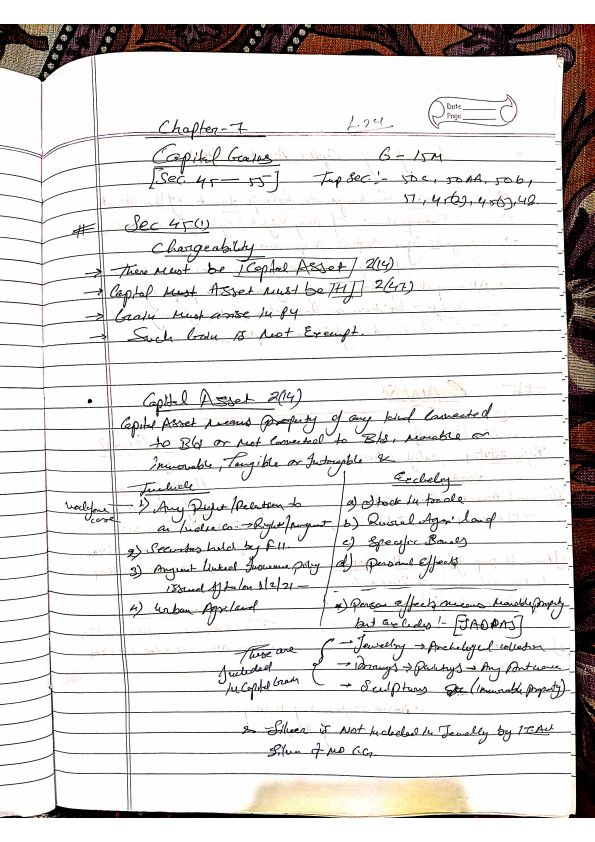 Date
Page
Chapter-7 L.24
Capital Gains 6-15M
[Sec 45 — 55] Imp Sec:- 50C, 50AA, 50B,
51, 45(2), 45(5), 48
# Sec 45(1)
Chargeability
→ There must be [Capital Asset] 2(14)
→ Capital Asset must be [TF] 2(47)
→ Gain must arise in PY
→ Such Gain is Not Exempt
• Capital Asset 2(14)
Capital Asset means property of any kind Connected
to B&P or not Connected to B&P, movable or
Immovable, Tangible or Intangible &
Include Excludes
case → 1) Any Right/Relation to a) Stock in trade
an India co. → Right/mngmt b) Rural Agri land
2) Securities held by FII c) Specific Bonds
3) Any unit Linked Insurance policy d) Personal Effects
issued after/on 1/2/21 —
4) Urban Agri land *) Person effects means movable property
but excludes:- [JADPAS]
These are → Jewellery → Archelogical collection
Included → Drawings → Paintings → Any
in Capital Gain → Sculptures (immovable property)
Silver is Not included in Jewelly by IT Act
Silver → NO CG